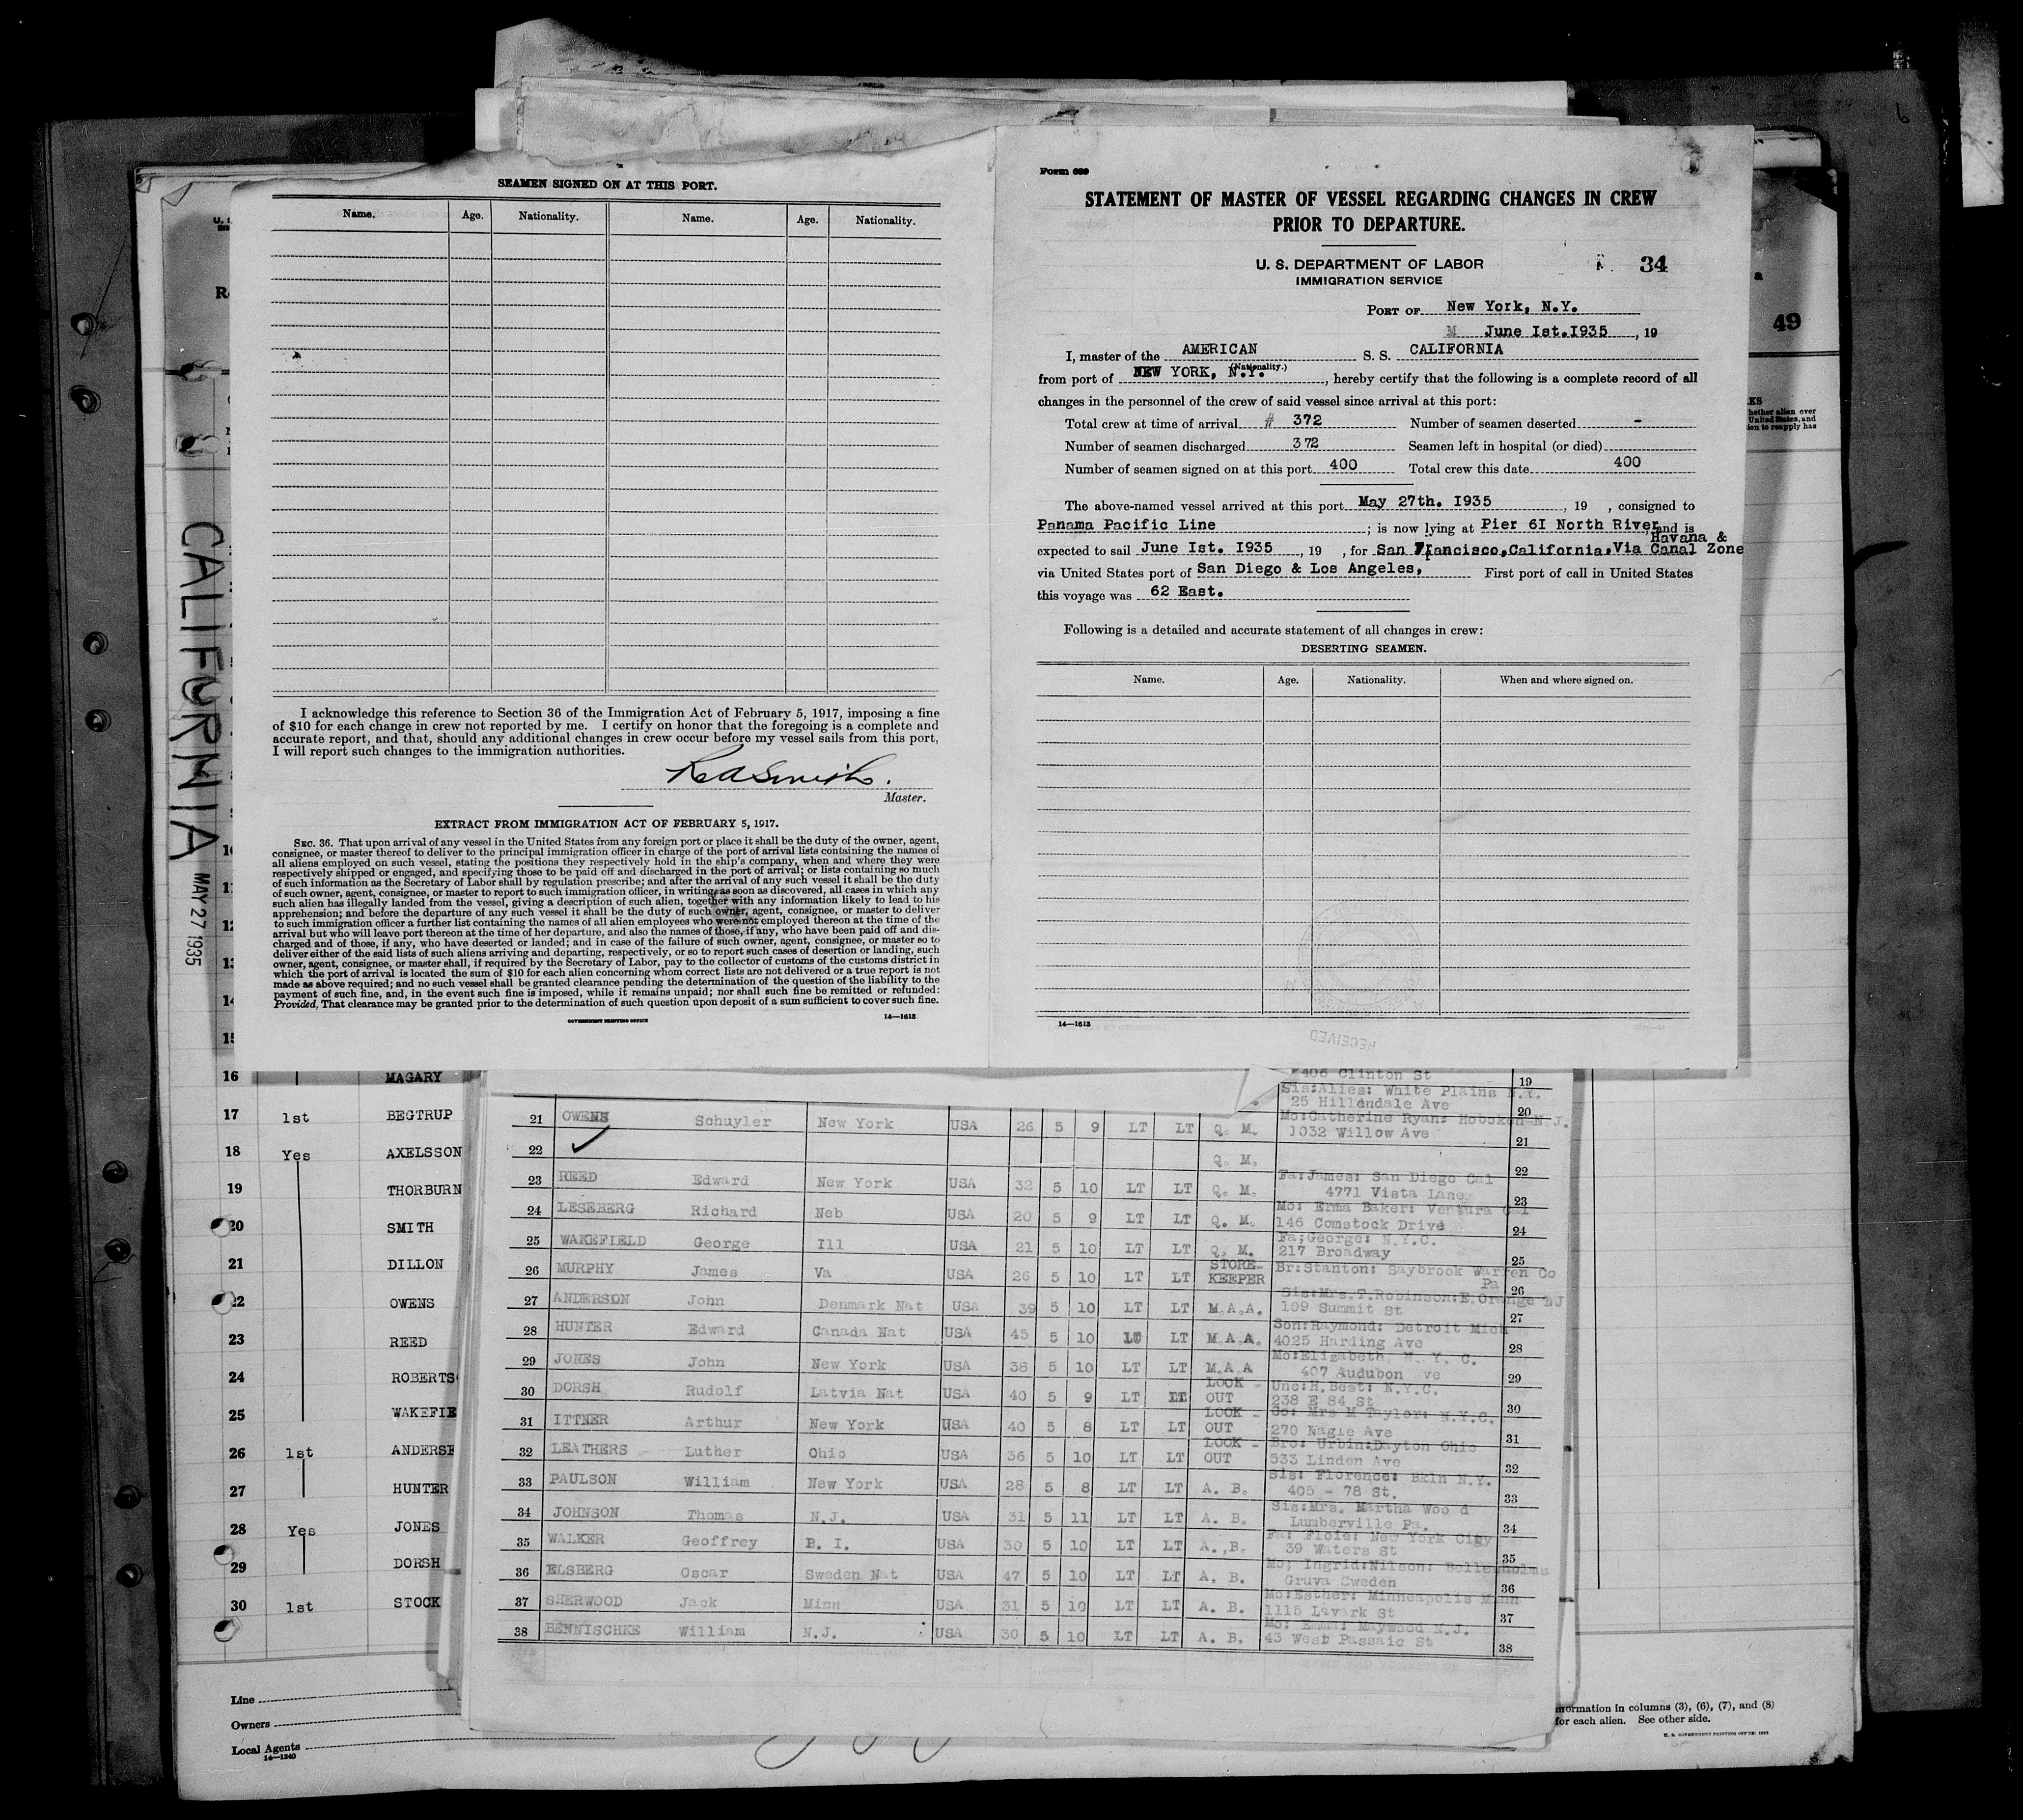 SEAMEN SIGNED ON AT THIS PORT.
Name. Age. Nationality. Name. Age. Nationality.
I acknowledge this reference to Section 36 of the Immigration Act of February 5, 1917, imposing a fine
of $10 for each change in crew not reported by me. I certify on honor that the foregoing is a complete and
accurate report, and that, should any additional changes in crew occur before my vessel sails from this port,
I will report such changes to the immigration authorities.
R A Smith.
Master.
EXTRACT FROM IMMIGRATION ACT OF FEBRUARY 5, 1917.
SEC. 36. That upon arrival of any vessel in the United States from any foreign port or place it shall be the duty of the owner, agent,
consignee, or master thereof to deliver to the principal immigration officer in charge of the port of arrival lists containing the names of
all aliens employed on such vessel, stating the positions they respectively hold in the ship's company, when and where they were
respectively shipped or engaged, and specifying those to be paid off and discharged in the port of arrival; or lists containing so much
of such information as the Secretary of Labor shall by regulation prescribe; and after the arrival of any such vessel it shall be the duty
of such owner, agent, consignee, or master to report to such immigration officer, in writing, as soon as discovered, all cases in which any
such alien has illegally landed from the vessel, giving a description of such alien, together with any information likely to lead to his
apprehension; and before the departure of any such vessel it shall be the duty of such owner, agent, consignee, or master to deliver
to such immigration officer a further list containing the names of all alien employees who were not employed thereon at the time of the
arrival but who will leave port thereon at the time of her departure, and also the names of those, if any, who have been paid off and dis-
charged and of those, if any, who have deserted or landed; and in case of the failure of such owner, agent, consignee, or master so to
deliver either of the said lists of such aliens arriving and departing, respectively, or so to report such cases of desertion or landing, such
owner, agent, consignee, or master shall, if required by the Secretary of Labor, pay to the collector of customs of the customs district in
which the port of arrival is located the sum of $10 for each alien concerning whom correct lists are not delivered or a true report is not
made as above required; and no such vessel shall be granted clearance pending the determination of the question of the liability to the
payment of such fine, and, in the event such fine is imposed, while it remains unpaid; nor shall such fine be remitted or refunded:
Provided, That clearance may be granted prior to the determination of such question upon deposit of a sum sufficient to cover such fine.
GOVERNMENT PRINTING OFFICE 14—1613
Form 689
STATEMENT OF MASTER OF VESSEL REGARDING CHANGES IN CREW
PRIOR TO DEPARTURE.
U. S. DEPARTMENT OF LABOR
IMMIGRATION SERVICE
34
PORT OF New York, N.Y.
June Ist.I935, 19
I, master of the AMERICAN S. S. CALIFORNIA
(Nationality.)
from port of NEW YORK, N.Y., hereby certify that the following is a complete record of all
changes in the personnel of the crew of said vessel since arrival at this port:
Total crew at time of arrival # 372 Number of seamen deserted -
Number of seamen discharged 372 Seamen left in hospital (or died)
Number of seamen signed on at this port 400 Total crew this date 400
The above-named vessel arrived at this port May 27th. I935, 19 , consigned to
Panama Pacific Line ; is now lying at Pier 6I North River and is
Havana &
expected to sail June Ist. I935, 19 , for San Francisco,California,Via Canal Zone
via United States port of San Diego & Los Angeles, First port of call in United States
this voyage was 62 East.
Following is a detailed and accurate statement of all changes in crew:
DESERTING SEAMEN.
Name. Age. Nationality. When and where signed on.
14—1613
RECEIVED
49
CALIFORNIA MAY 27 1935
16 MAGARY
17 1st BEGTRUP
18 Yes AXELSSON
19 THORBURN
20 SMITH
21 DILLON
22 OWENS
23 REED
24 ROBERTS
25 WAKEFIE
26 1st ANDERSE
27 HUNTER
28 Yes JONES
29 DORSH
30 1st STOCK
Line
Owners
Local Agents
14—1240
406 Clinton St 19
Sis:Alies: White Plains N.Y.
25 Hillendale Ave 20
21 OWENS Schuyler New York USA 26 5 9 LT LT Q. M. Mo:Catherine Ryan: Hoboken N.J.
1032 Willow Ave 21
22 Q. M. 22
23 REED Edward New York USA 32 5 10 LT LT Q. M. Fa:James: San Diego Cal
4771 Vista Lane 23
24 LESEBERG Richard Neb USA 20 5 9 LT LT Q. M. Mo: Erma Baker: Ventura Cal
146 Comstock Drive 24
25 WAKEFIELD George Ill USA 21 5 10 LT LT Q. M. Fa;George: N.Y.C.
217 Broadway 25
26 MURPHY James Va USA 26 5 10 LT LT STORE-KEEPER Br:Stanton: Saybrook Warren Co
Pa 26
27 ANDERSON John Denmark Nat USA 39 5 10 LT LT M.A.A. Sis:Mrs.T.Robinson:E.Orange NJ
109 Summit St 27
28 HUNTER Edward Canada Nat USA 45 5 10 LT LT M.A.A. Son:Raymond: Detroit Mich
4025 Harding Ave 28
29 JONES John New York USA 38 5 10 LT LT M.A.A Mo:Elizabeth N. Y. C.
407 Audubon ve 29
30 DORSH Rudolf Latvia Nat USA 40 5 9 LT LT LOOK - OUT Unc:H.Best: N.Y.C.
238 E 84 St 30
31 ITTNER Arthur New York USA 40 5 8 LT LT LOOK - OUT Co: Mrs M Taylor: N.Y.C.
270 Nagle Ave 31
32 LEATHERS Luther Ohio USA 36 5 10 LT LT LOOK - OUT Bro: Urbin:Dayton Ohio
533 Linden Ave 32
33 PAULSON William New York USA 28 5 8 LT LT A. B. Sis: Florence: Bkln N.Y.
405 - 78 St. 33
34 JOHNSON Thomas N.J. USA 31 5 11 LT LT A. B. Sis:Mrs. Martha Woo d
Lumberville Pa. 34
35 WALKER Geoffrey P. I. USA 30 5 10 LT LT A.,B. Fa: Floie: New York City
39 Waters St 35
36 ELSBERG Oscar Sweden Nat USA 47 5 10 LT LT A. B. Mo; Ingrid:Nilson:
Gruva Sweden 36
37 SHERWOOD Jack Minn USA 31 5 10 LT LT A. B. Mo:Esther: Minneapolis Minn
1115 Lavark St 37
38 BENNISCHKE William N.J. USA 30 5 10 LT LT A. B. Mo: Emma: Maywood N.J.
43 West Passaic St 38
hether alien over
United States, and
ion to reapply has
information in columns (3), (6), (7), and (8)
for each alien. See other side.
U. S. GOVERNMENT PRINTING OFFICE